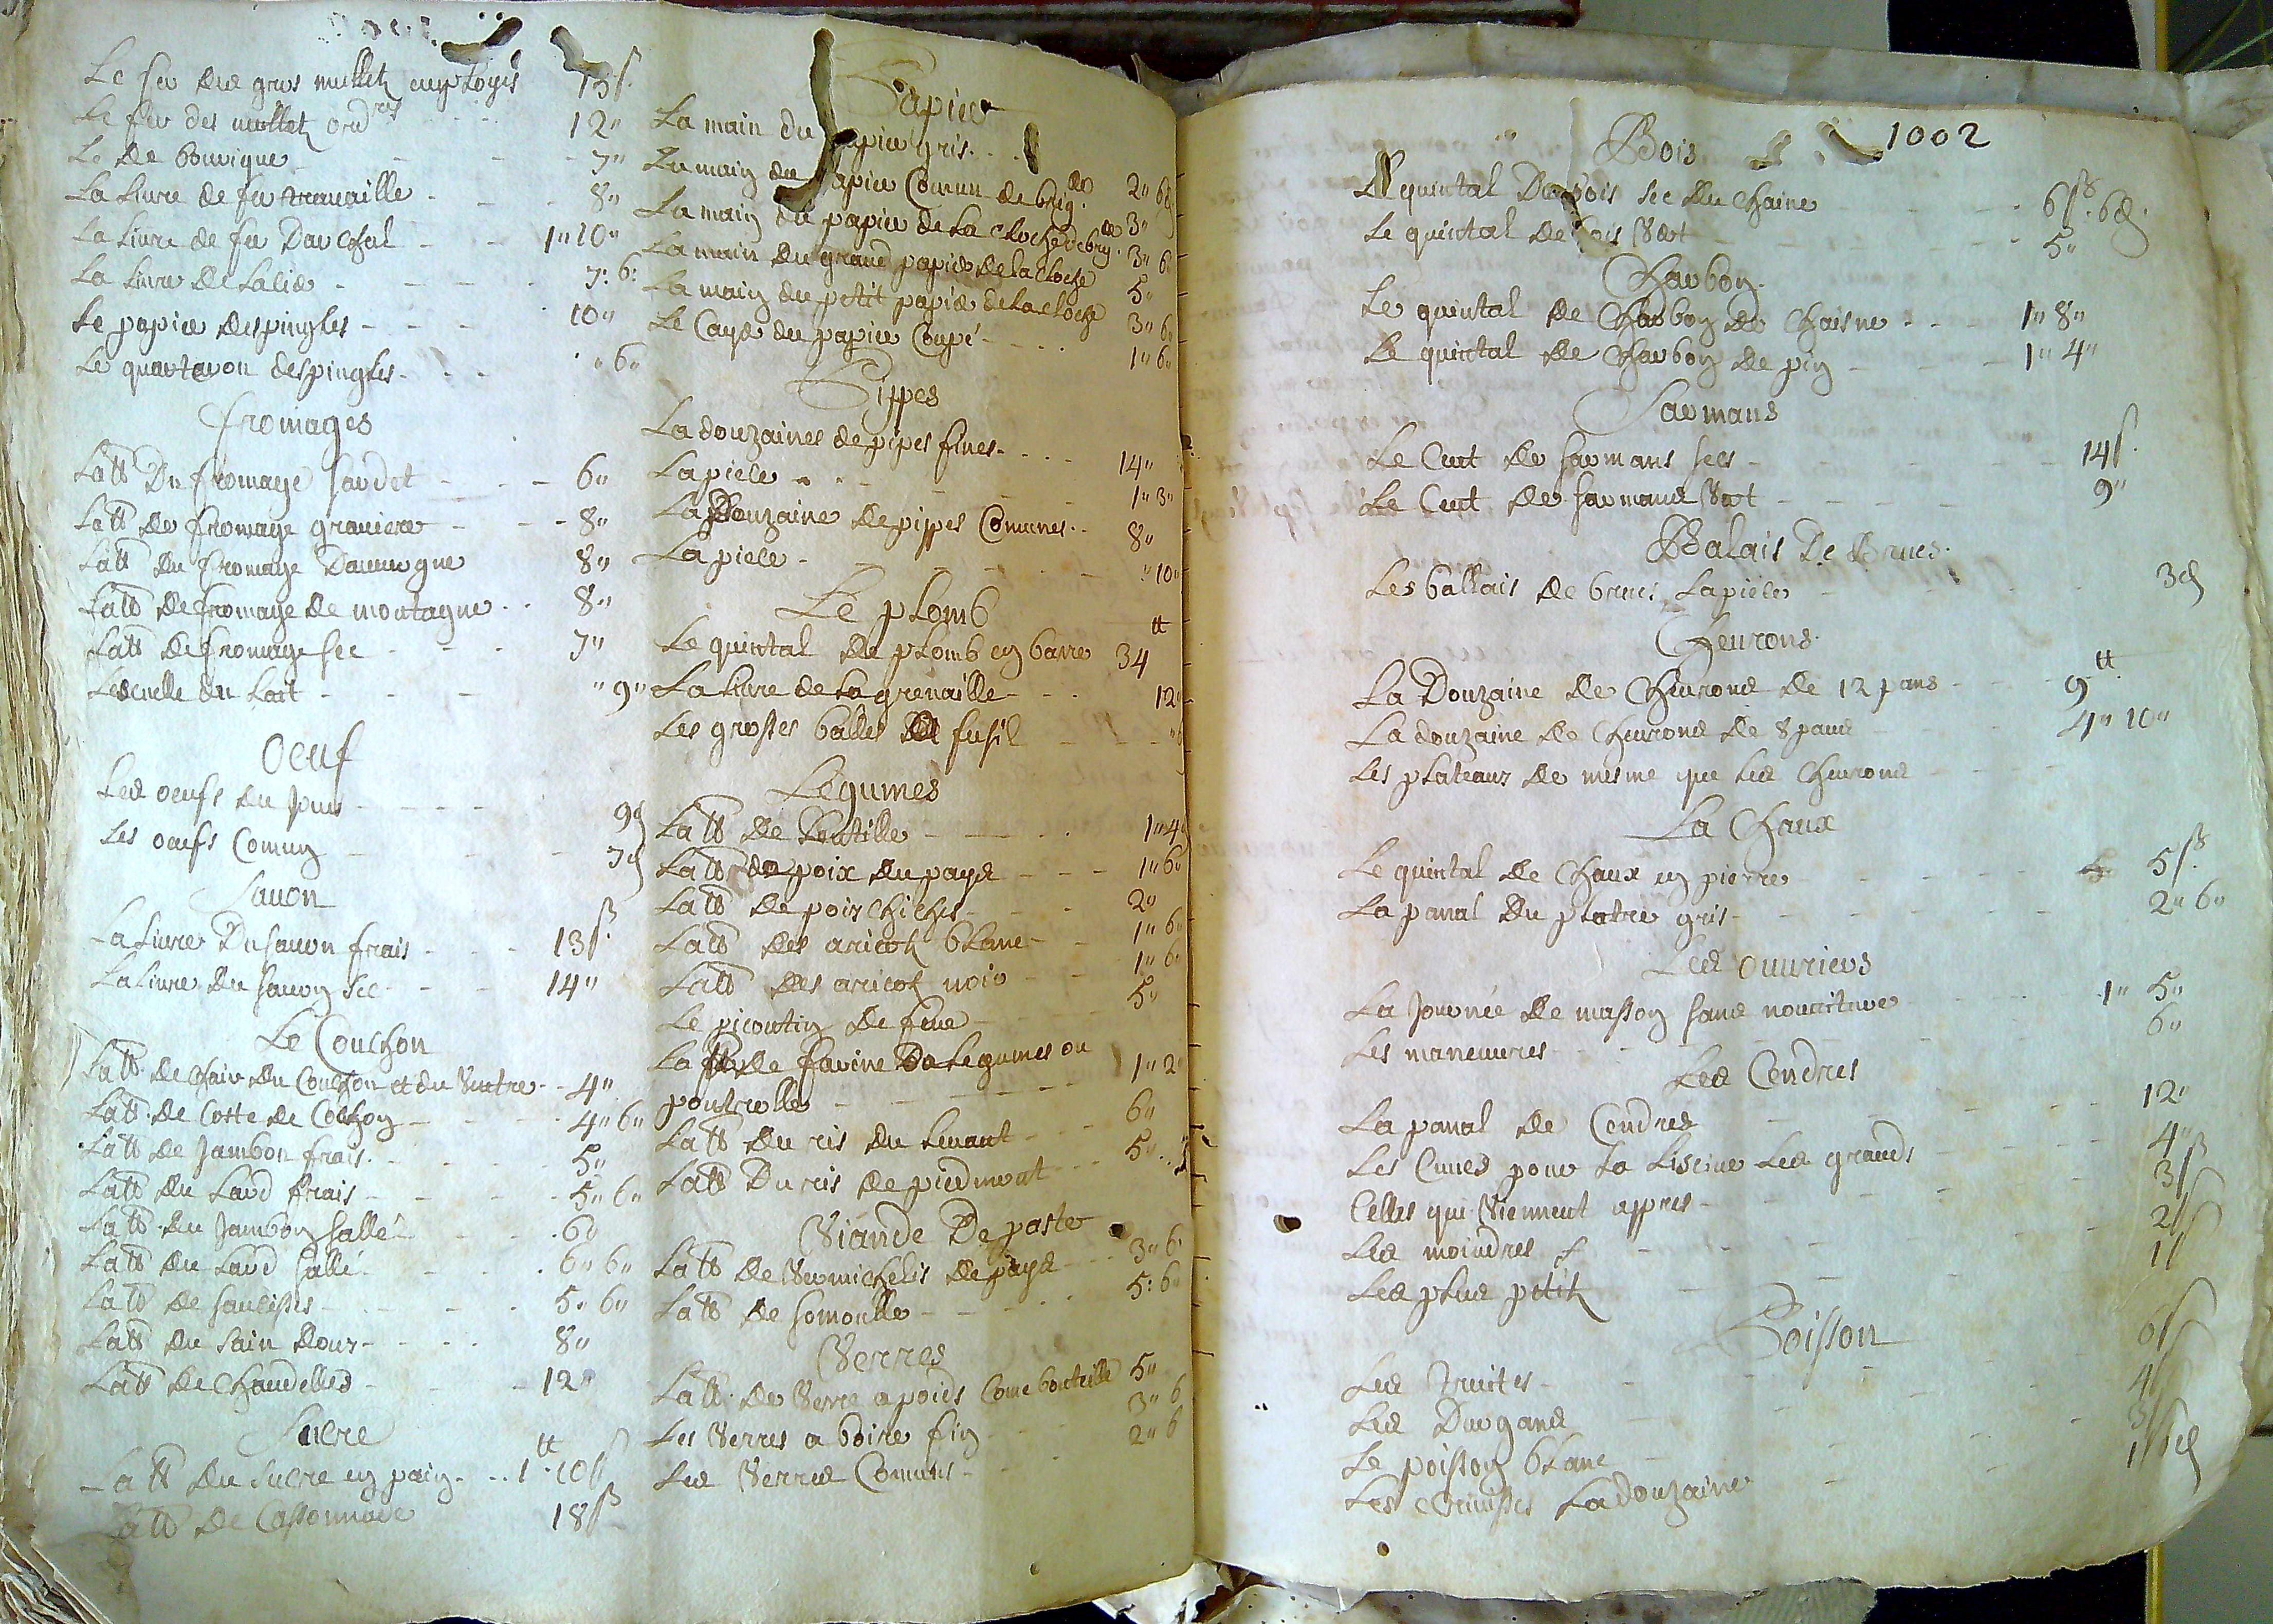 Le fer des gros mulletz employés 15 s.
Le fer des mulletz ord.res 12"
Le de bourique 7"
La Livre de fer travaille 8"
La Livre de fer Darchal 1" 10"
La Livre de Lalie 7: 6:
Le papier despingles 10"
Le quarteron despingles " 6"
fromages
La tt Du fromage sardet 6"
La tt de fromage graviere 8"
La tt du fromage Dauvergne 8"
La tt de fromage de montagne 8"
La tt de fromage sec 7"
Lescuelle du Lait " 9"
Oeuf
Les oeufs du Jour 9 d
Les oeufs Comung 7 d
Savon
La Livre Du savon frais 13 s.
La Livre du savon sec 14"
Le Couchon
La tt de chair du Couchon et du Ventre 4"
La tt de Coste de Cochon 4" 6"
La tt de Jambon frais 5"
La tt du Lard frais 5" 6"
La tt du Jambon sallé 6"
La tt du Lard sallé 6" 6"
La tt de saucisses 5" 6"
La tt du sain doux 8"
La tt de Chandelles 12"
Sucre
La tt du sucre en pain 1 tt 10 s
La tt de Cassonnade 18 s
Papier
La main du papier gris 2" 6 d
La main du papier Comun de brig. 3"
La main du papier de La Cloche de brig. 3" 6
La main du grand papier de la cloche 5"
La main du petit papier de la cloche 3" 6"
Le Cayer du papier Coupé 1" 6"
Pippes
La douzaines de pipes fines 14"
La piece 1" 3"
La Douzaine de pippes Comunes 8"
La piece " 10"
Le plomb
Le quintal de plomb en barre 34 tt
La Livre de La grenaille 12"
Les grosses balles de fusil
Légumes
La tt de Lentille 1" 4"
La tt de poix du pays 1" 6"
La tt de pois chiches 2"
La tt des aricotz blanc 1" 6"
La tt des aricotz noir 1" 6"
Le picoutin de feve 5"
La tt de farine De Legumes ou
poutrolles 1" 2"
La tt du ris du Levant 6"
La tt Du ris de piedmont 5"
Viande De paste
La tt de Vermichelis de pays 3" 6"
La tt de somoulle 5: 6"
Verres
La tt de Verre a poids Come bouteille 5"
Les Verres a boire fin 3" 6
Les Verres Comuns 2" 6
1002
Bois
Le quintal Du bois sec du chaine 6 s. 6 d.
Le quintal de bois Vert 5"
Charbon
Le quintal de Charbon de Chaisne 1" 8"
Le quintal de Charbon de pin 1" 4"
Sarmans
Le Cent de sarmans secs 14 s.
Le Cent de sarmans Vert 9"
Balais De Brues
Les ballais de brues La piece 3 d
Chevrons
La Douzaine de Chevrons de 12 pans 9 tt
La douzaine de Chevrons de 8 pans 4" 10"
Les plateaux de mesme que Les Chevrons
La Chaux
Le quintal de Chaux en pierre 5 s.
La panal du platre gris 2" 6"
Les ouvriers
La Journée de masson sans nourriture 1" 5"
Les maneuvres 6"
Les Cendres
La panal de Cendres 12"
Les Cunes pour La Liscive Les grands 4"
Celles qui Viennent appres 3 s
Les moindres 2 s
Les plus petitz 1 s
Poisson
Les Truites 6 s
Les Durgans 4 s
Le poisson blanc 3 s
Les Crivisses La douzaine